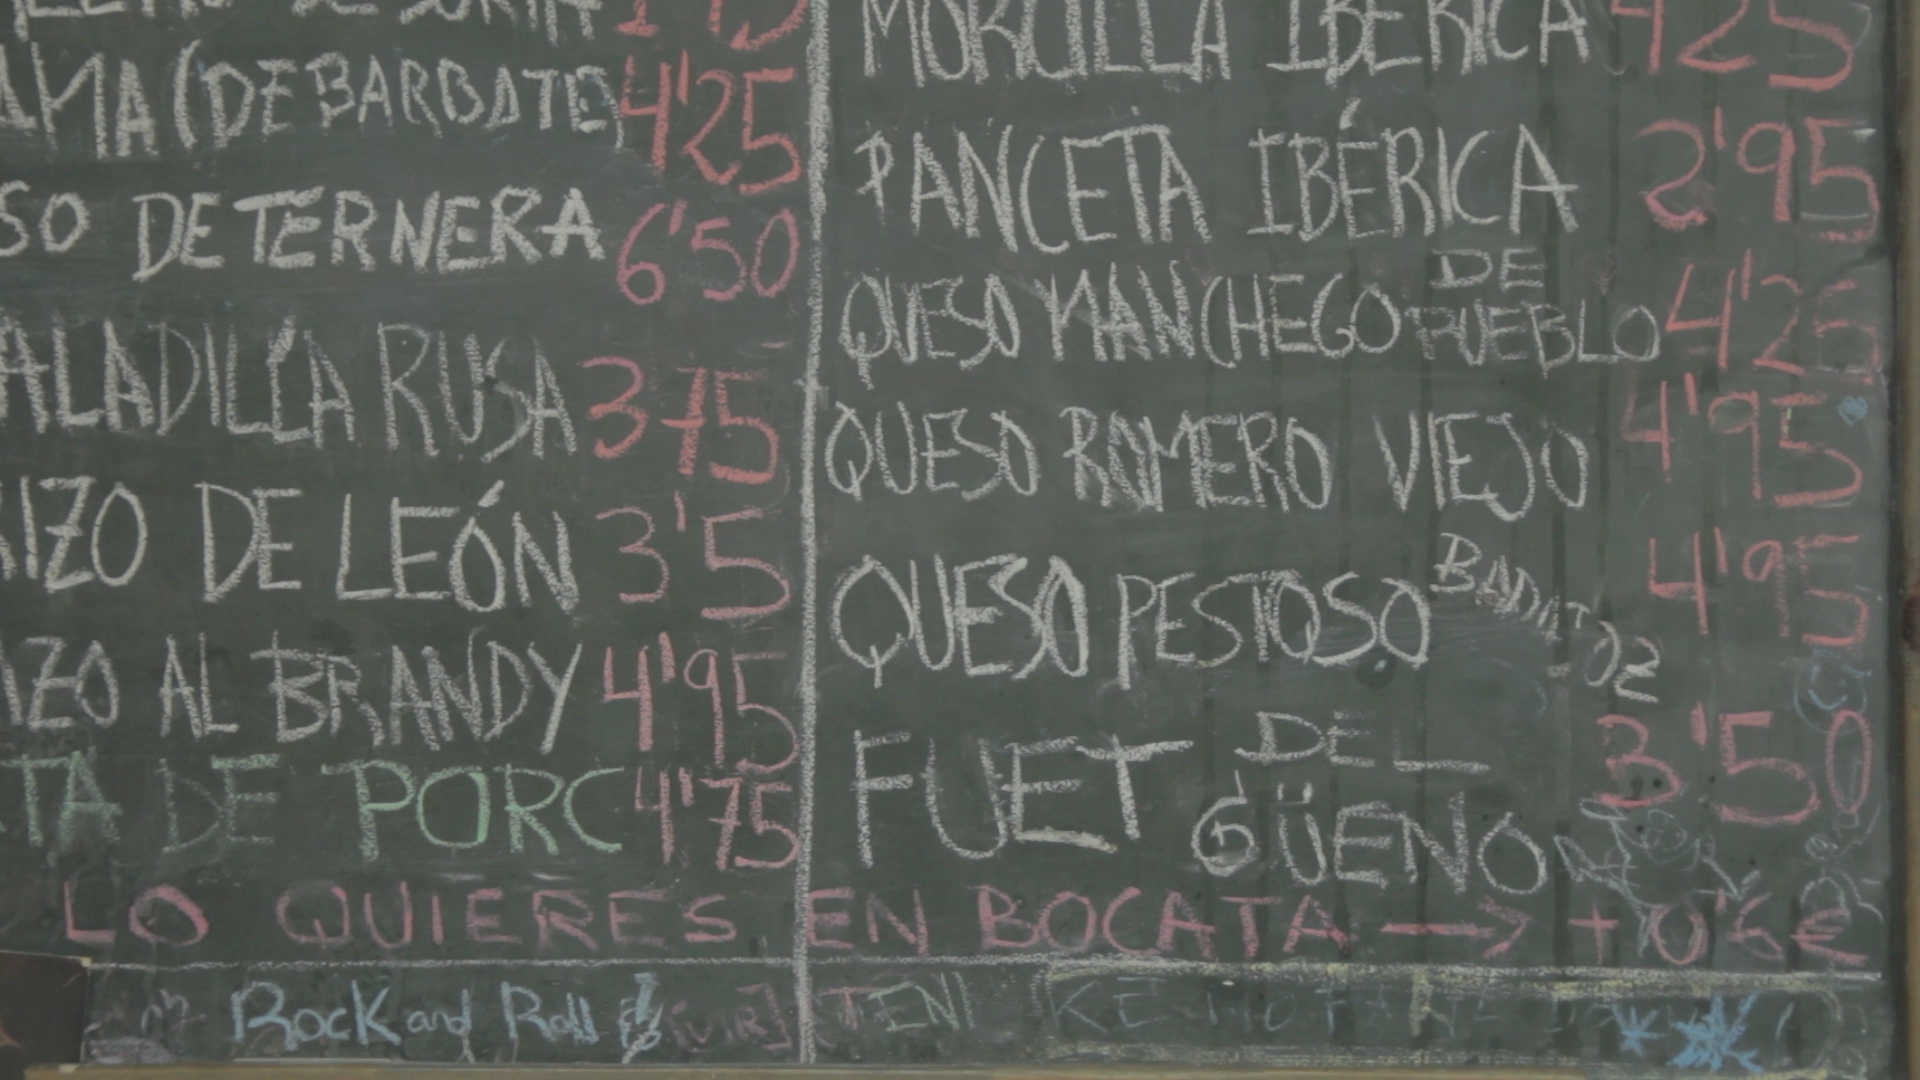 4'25
(DE BARBATE) 4'25
SO DE TERNERA 6'50
ALADILLA RUSA 3'75
IZO DE LEÓN 3'5
IZO AL BRANDY 4'95
TA DE PORC 4'75
MORCILLA IBÉRICA 4'25
PANCETA IBÉRICA 2'95
QUESO MANCHEGO DE PUEBLO 4'25
QUESO ROMERO VIEJO 4'95
QUESO PESTOSO BADAJOZ 4'95
FUET DEL GÜENO 3'50
LO QUIERES EN BOCATA → +0'6€
Rock and Roll